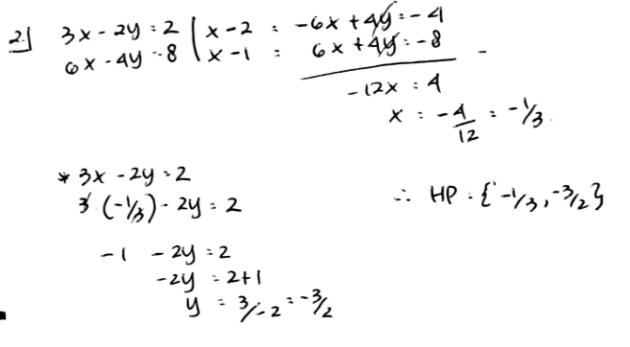 2.] 3x - 2y = 2 | x - 2 : -6x + 4y = -4
6x - 4y = 8 | x - 1 : 6x + 4y = -8 -
-12x = 4
x = -4/12 = -1/3
* 3x - 2y = 2
3 (-1/3) - 2y = 2
∴ HP : {-1/3, -3/2}
-1 - 2y = 2
-2y = 2+1
y = 3/-2 = -3/2